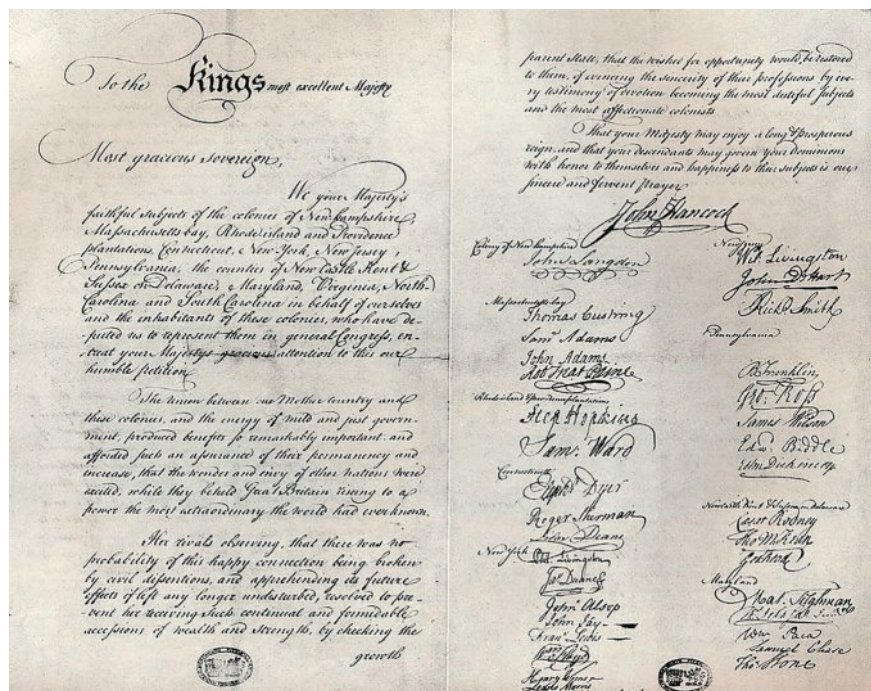 To the Kings most excellent Majesty
Most gracious sovereign,
We your Majesty's
faithful subjects of the colonies of New-hampshire,
Massachusetts bay, Rhode island and Providence
plantations, Connecticut, New-York, New Jersey,
Pennsylvania, the counties of New Castle Kent &
Sussex on Delaware, Maryland, Virginia, North-
Carolina and South Carolina in behalf of ourselves
and the inhabitants of these colonies, who have de-
puted us to represent them in general Congress, en-
treat your Majestys gracious attention to this our
humble petition.
The union between our Mother Country and
these colonies, and the energy of mild and just govern-
ment, produced benefits so remarkably important and
afforded such an assurance of their permanency and
increase, that the wonder and envy of other nations were
excited, while they beheld Great Britain riseing to a
power the most extraordinary the world had ever known.
Her rivals observing, that there was no
probability of this happy connection being broken
by civil dissentions, and apprehending its future
effects if left any longer undisturbed, resolved to pre-
vent her receiving such continual and formidable
accessions of wealth and strength, by checking the
growth
parent State, that the wished for opportunity would be restored
to them, of evincing the sincerity of their professions by eve-
ry testimony of devotion becoming the most dutiful subjects
and the most affectionate colonists
That your Majesty may enjoy a long & prosperous
reign, and that your descendants may govern your Dominions
with honor to themselves and happiness to their subjects is our
sincere and fervent prayer
John Hancock
Colony of New hampshire
John Langdon
Massachusetts bay
Thomas Cushing
Saml Adams
John Adams
Robt Treat Paine
Rhode island & providence plantations
Step Hopkins
Sam: Ward
Connecticut
Elipht Dyer
Roger Sherman
Silas Deane
New York
Phil. Livingston
Jas Duane
John Alsop
John Jay
Frans Lewis
Wm Floyd
Lewis Morris
New Jersey
Wil: Livingston
John D Hart
Richd Smith
Pennsylvania
B Franklin
Geo: Ross
James Wilson
Edwd Biddle
John Dickinson
New Castle Kent & Sussex on delaware
Caesar Rodney
Tho M:Kean
Geo Read
Maryland
Mat. Tilghman
Wm Paca
Samuel Chase
Thos Stone